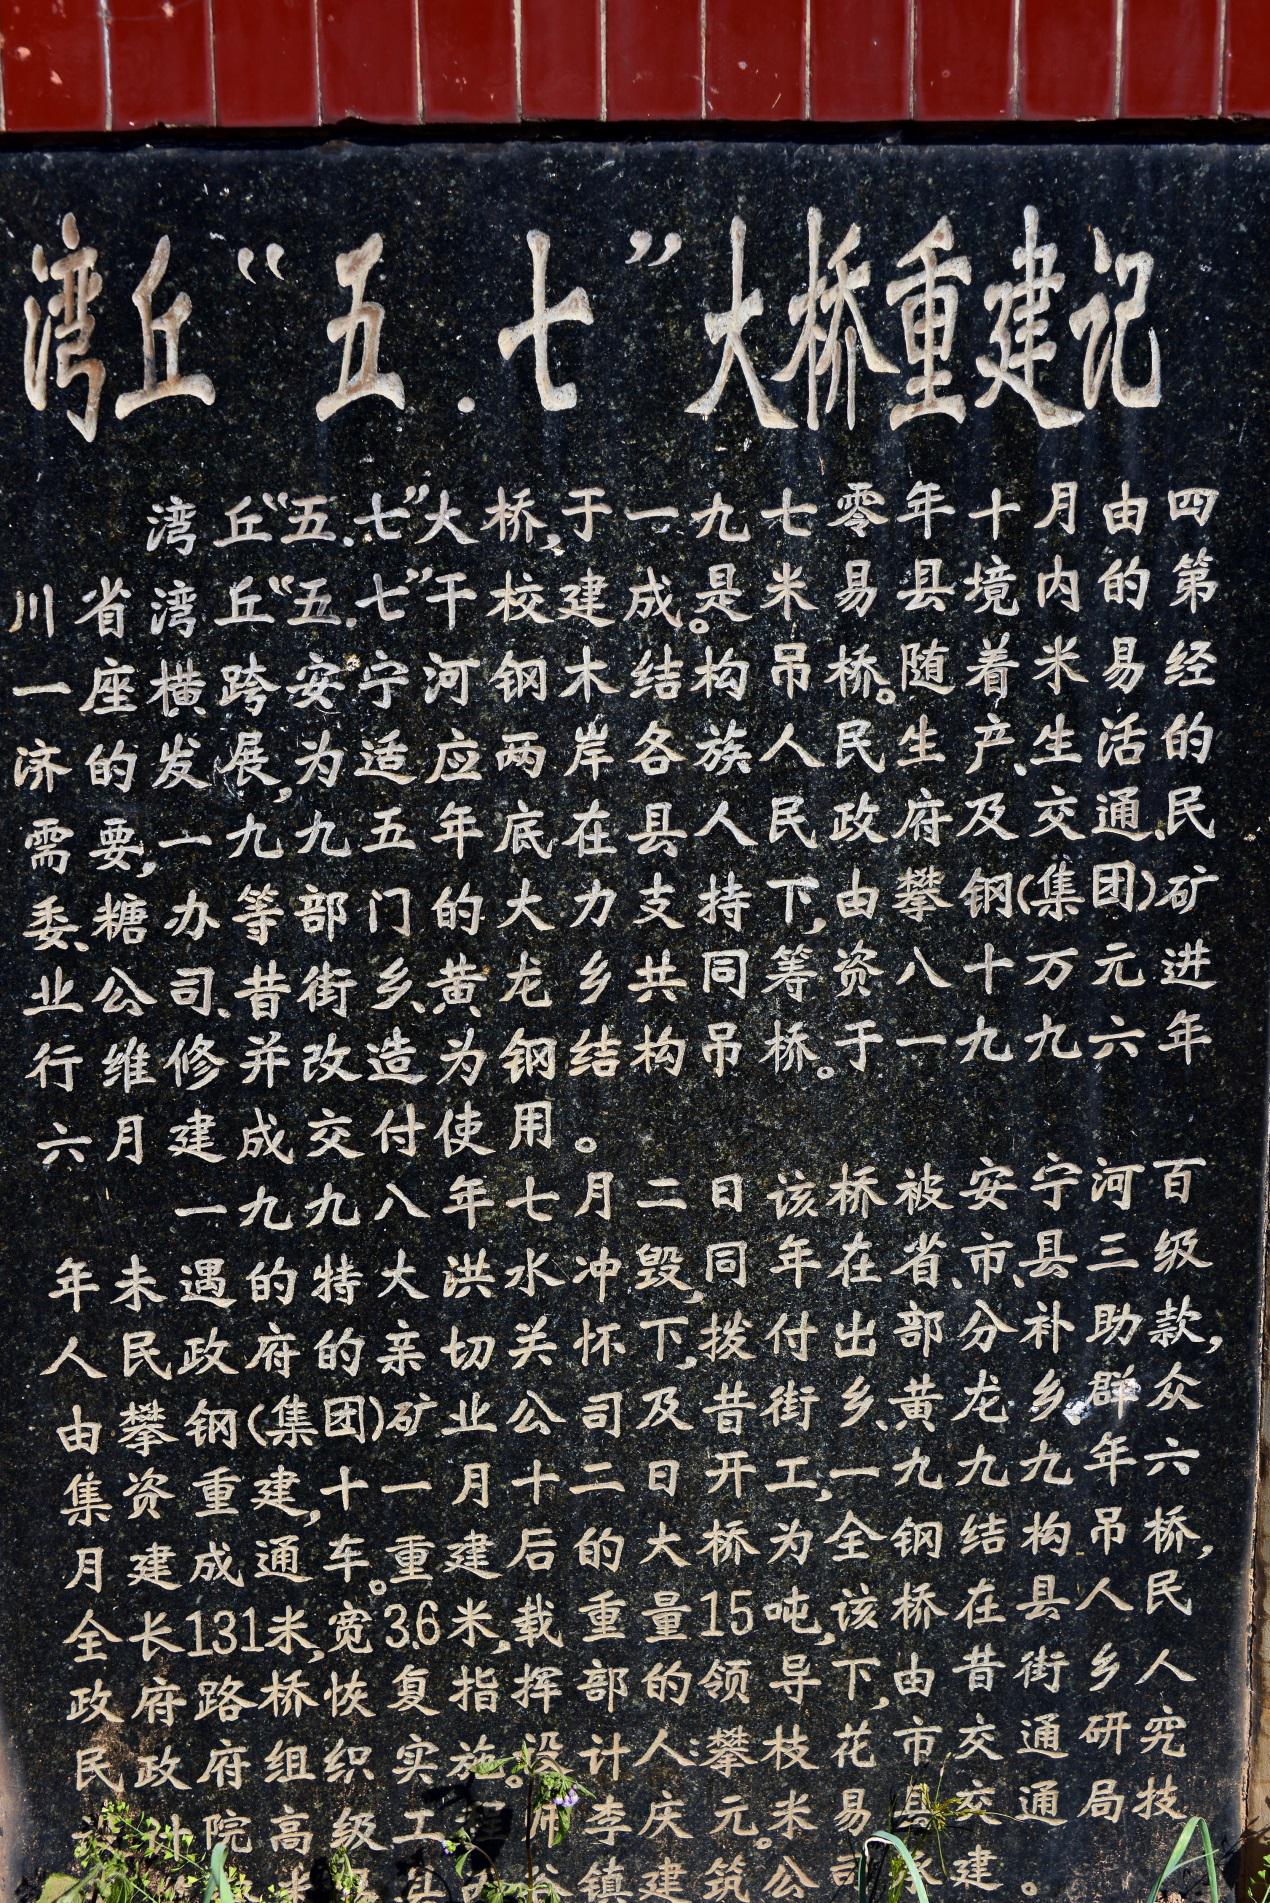 湾丘“五.七”大桥重建记
湾丘“五.七”大桥,于一九七零年十月由四
川省湾丘“五.七”干校建成。是米易县境内的第
一座横跨安宁河钢木结构吊桥。随着米易经
济的发展,为适应两岸各族人民生产、生活的
需要,一九九五年底在县人民政府及交通、民
委、糖办等部门的大力支持下,由攀钢(集团)矿
业公司、昔街乡、黄龙乡共同筹资八十万元进
行维修并改造为钢结构吊桥。于一九九六年
六月建成交付使用。
一九九八年七月二日该桥被安宁河百
年未遇的特大洪水冲毁,同年在省、市、县三级
人民政府的亲切关怀下,拨付出部分补助款,
由攀钢(集团)矿业公司及昔街乡、黄龙乡群众
集资重建,十一月十二日开工,一九九九年六
月建成通车。重建后的大桥为全钢结构吊桥,
全长131米,宽3.6米,载重量15吨,该桥在县人民
政府路桥恢复指挥部的领导下,由昔街乡人
民政府组织实施。设计人:攀枝花市交通研究
院高级工程师李庆元。米易县交通局技
镇建筑公司承建。